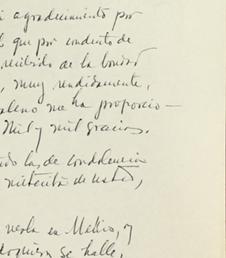 i agradecimiento por
que por conducto de
recibido de la bondad
, muy rendidamente,
pleno me ha proporcio-
Mil y mil gracias.
las de condolencia
de usted,
verla en México, y
se halle,